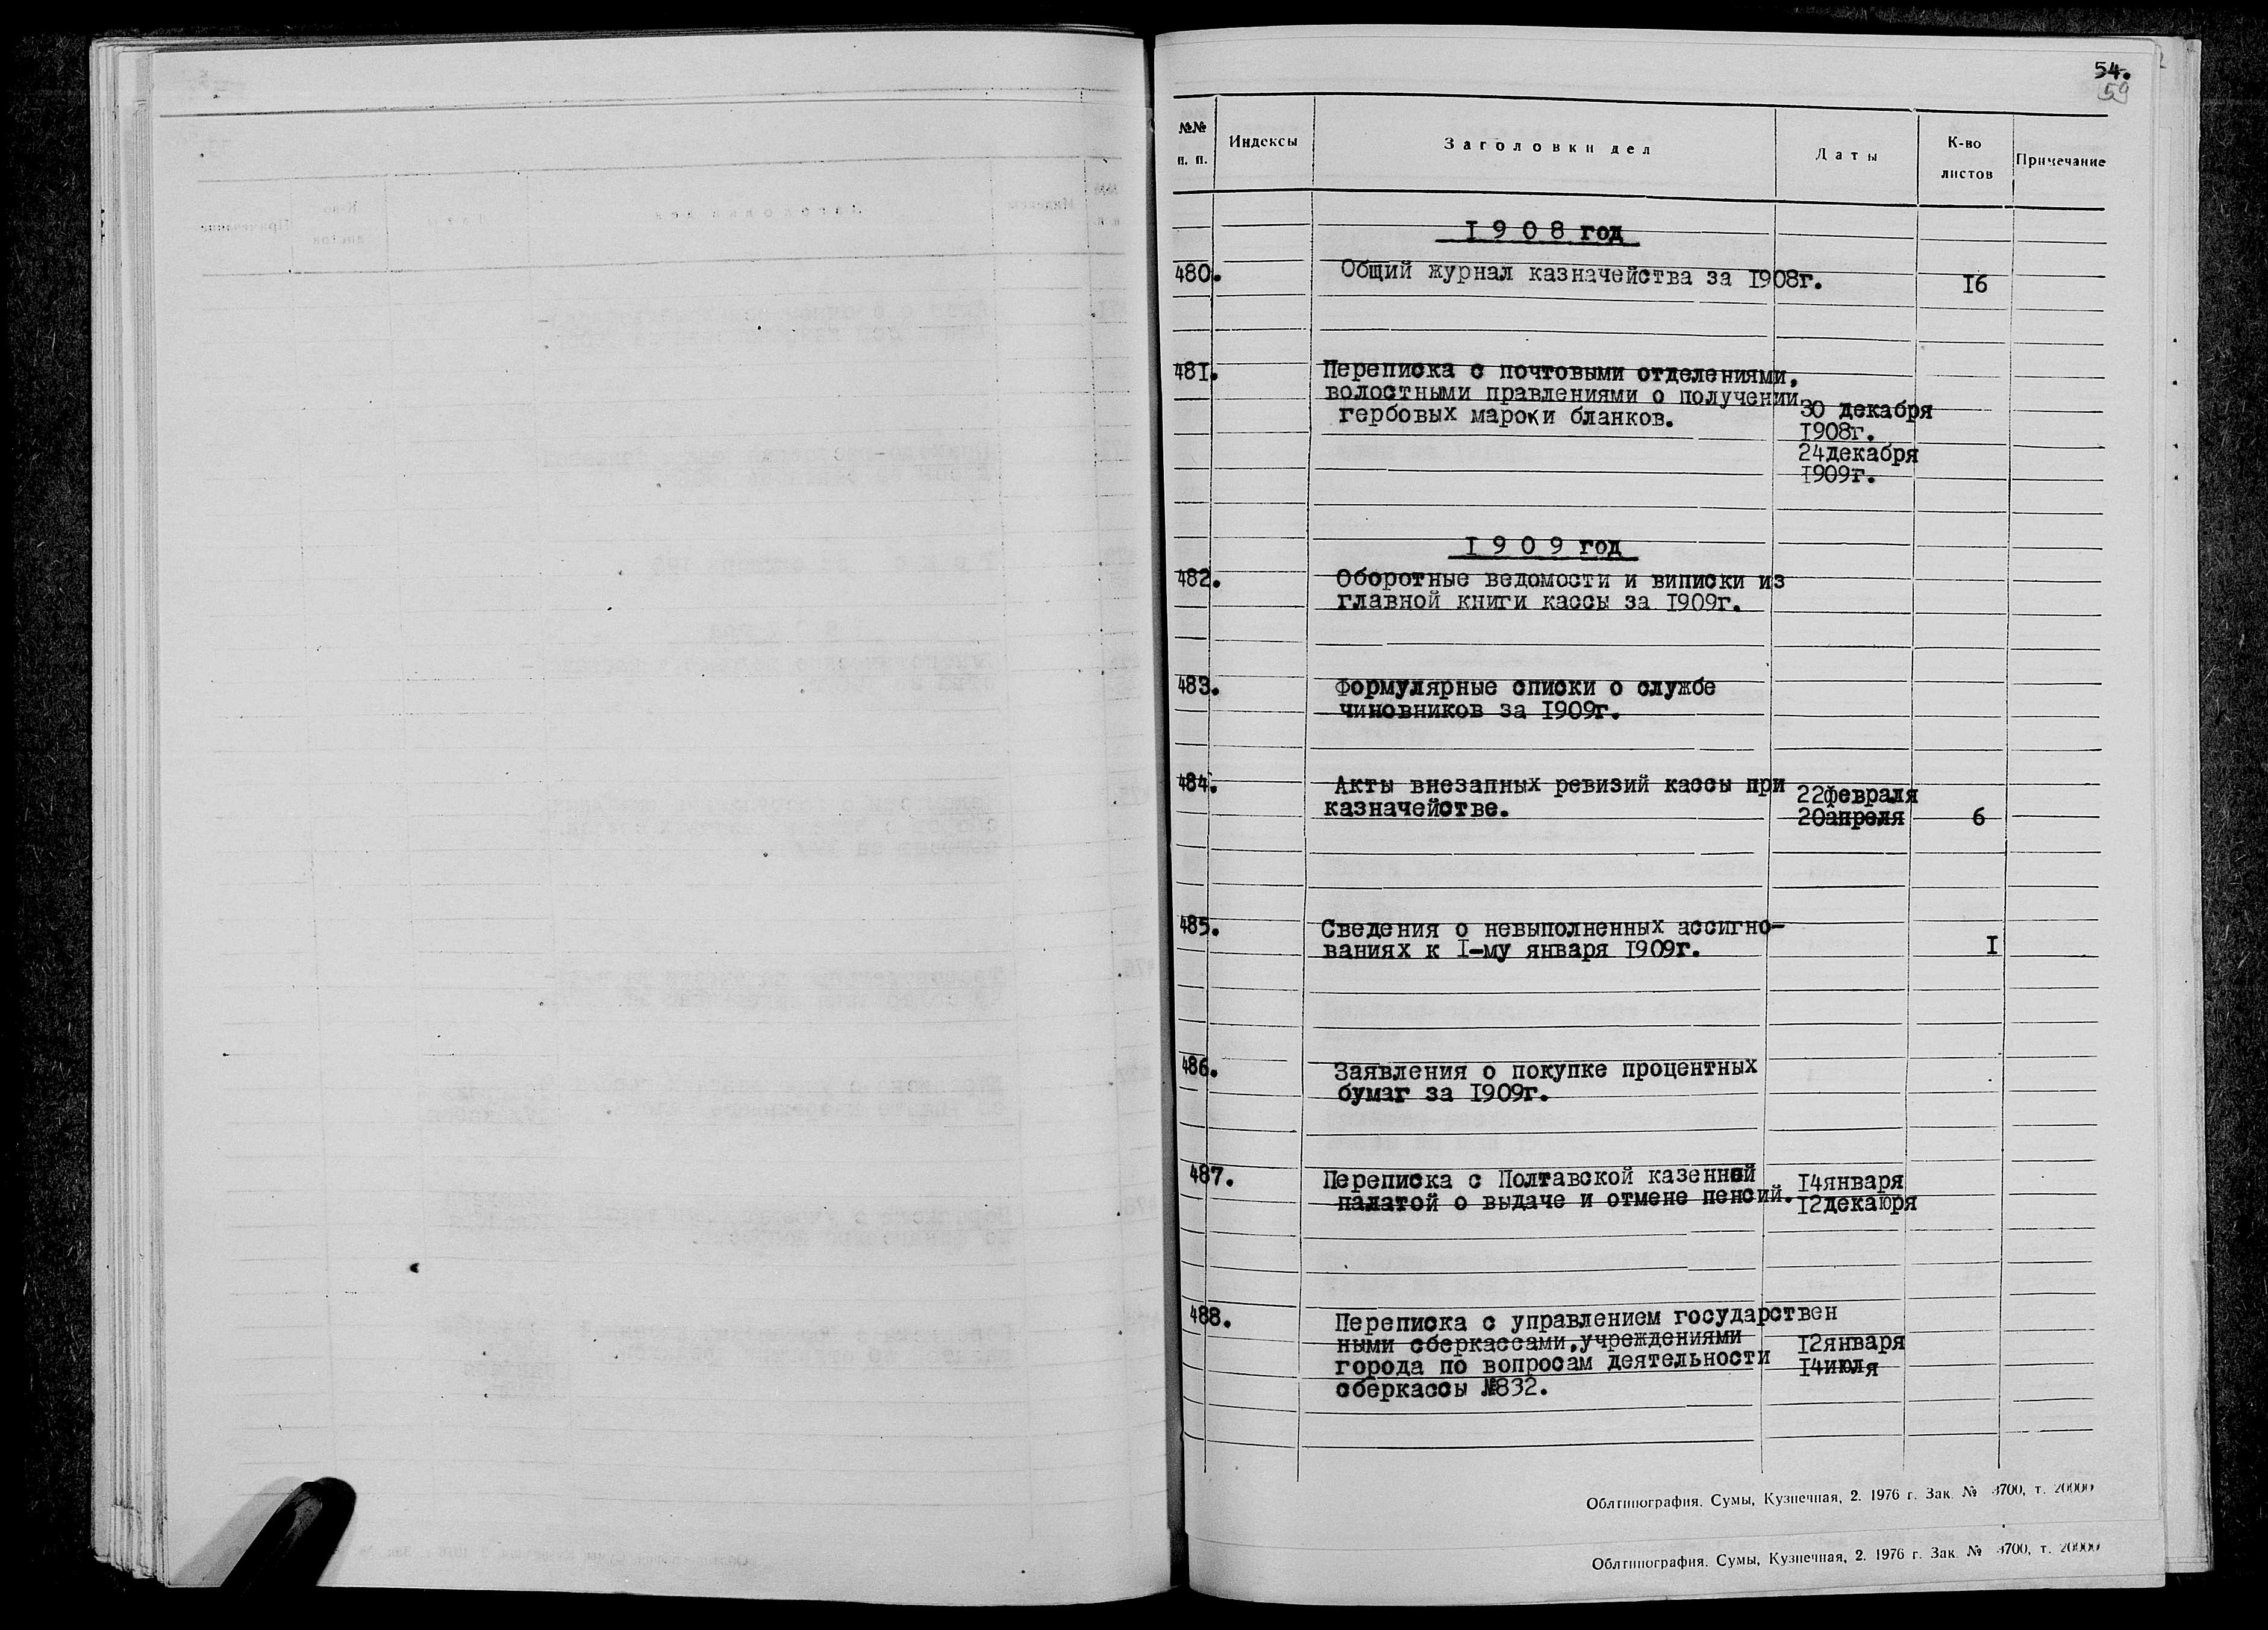 54.
59
№№
п. п.
Индексы
Заголовки дел
Даты
К-во
листов
Примечание
1908 год
480.
Общий журнал казначейства за 1908г.
16
481.
Переписка с почтовыми отделениями,
волостными правлениями о получении
гербовых марок и бланков.
30 декабря
1908г.
24декабря
1909г.
1909 год
482.
Оборотные ведомости и виписки из
главной книги кассы за 1909г.
483.
Формулярные списки о службе
чиновников за 1909г.
484.
Акты внезапных ревизий кассы при
казначействе.
22февраля
20апреля
6
485.
Сведения о невыполненных ассигно-
ваниях к I-му января 1909г.
I
486.
Заявления о покупке процентных
бумаг за 1909г.
487.
Переписка с Полтавской казенной
палатой о выдаче и отмене пенсий.
14января
12декаюря
488.
Переписка с управлением государствен
ными сберкассами,учреждениями
города по вопросам деятельности
сберкассы №832.
12января
14июля
Облтипография. Сумы, Кузнечная, 2. 1976 г. Зак. № 3700, т. 20000
Облтипография. Сумы, Кузнечная, 2. 1976 г. Зак. № 3700, т. 20000